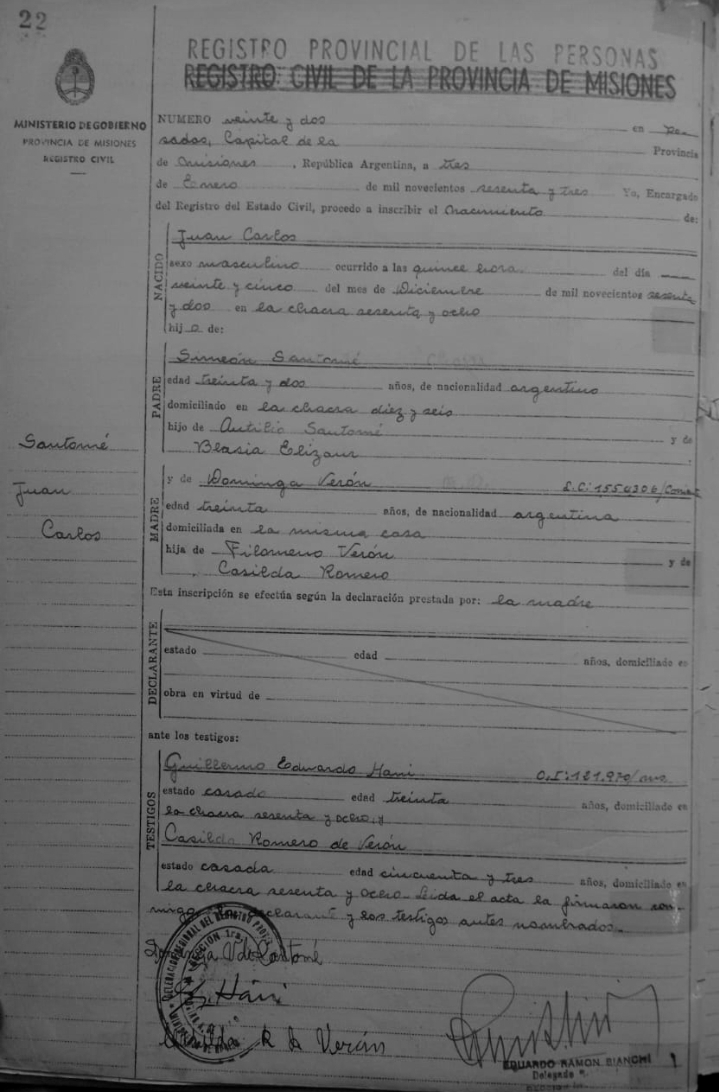 22
REGISTRO PROVINCIAL DE LAS PERSONAS
REGISTRO CIVIL DE LA PROVINCIA DE MISIONES
MINISTERIO DE GOBIERNO
PROVINCIA DE MISIONES
REGISTRO CIVIL
NUMERO veinte y dos en Po-
sadas, Capital de la Provincia
de Misiones, República Argentina, a tres
de Enero de mil novecientos sesenta y tres Yo, Encargado
del Registro del Estado Civil, procedo a inscribir el Nacimiento de:
NACIDO
Juan Carlos
sexo masculino ocurrido a las quince hora del día
veinte y cinco del mes de Diciembre de mil novecientos sesenta
y dos en la chacra sesenta y ocho
hijo de:
PADRE
Simeón Santomé
edad treinta y dos años, de nacionalidad argentino
domiciliado en la chacra diez y seis
hijo de Autilio Santomé y de
Blasia Elizaur
Santomé
Juan
Carlos
MADRE
y de Dominga Verón L.C:1550306/
edad treinta años, de nacionalidad argentina
domiciliada en la misma casa
hija de Filomeno Verón y de
Casilda Romero
Esta inscripción se efectúa según la declaración prestada por: la madre
DECLARANTE
estado edad años, domiciliado en
obra en virtud de
ante los testigos:
TESTIGOS
Guillermo Eduardo Hani C.I:121.970/
estado casado edad treinta años, domiciliado en
la chacra sesenta y ocho, y
Casilda Romero de Verón
estado casada edad cincuenta y tres años, domiciliado en
la chacra sesenta y ocho. Leida el acta la firmaron con-
migo declarante y los testigos antes nombrados.
V de Santomé
Hani
R de Verón
EDUARDO RAMON BIANCHI